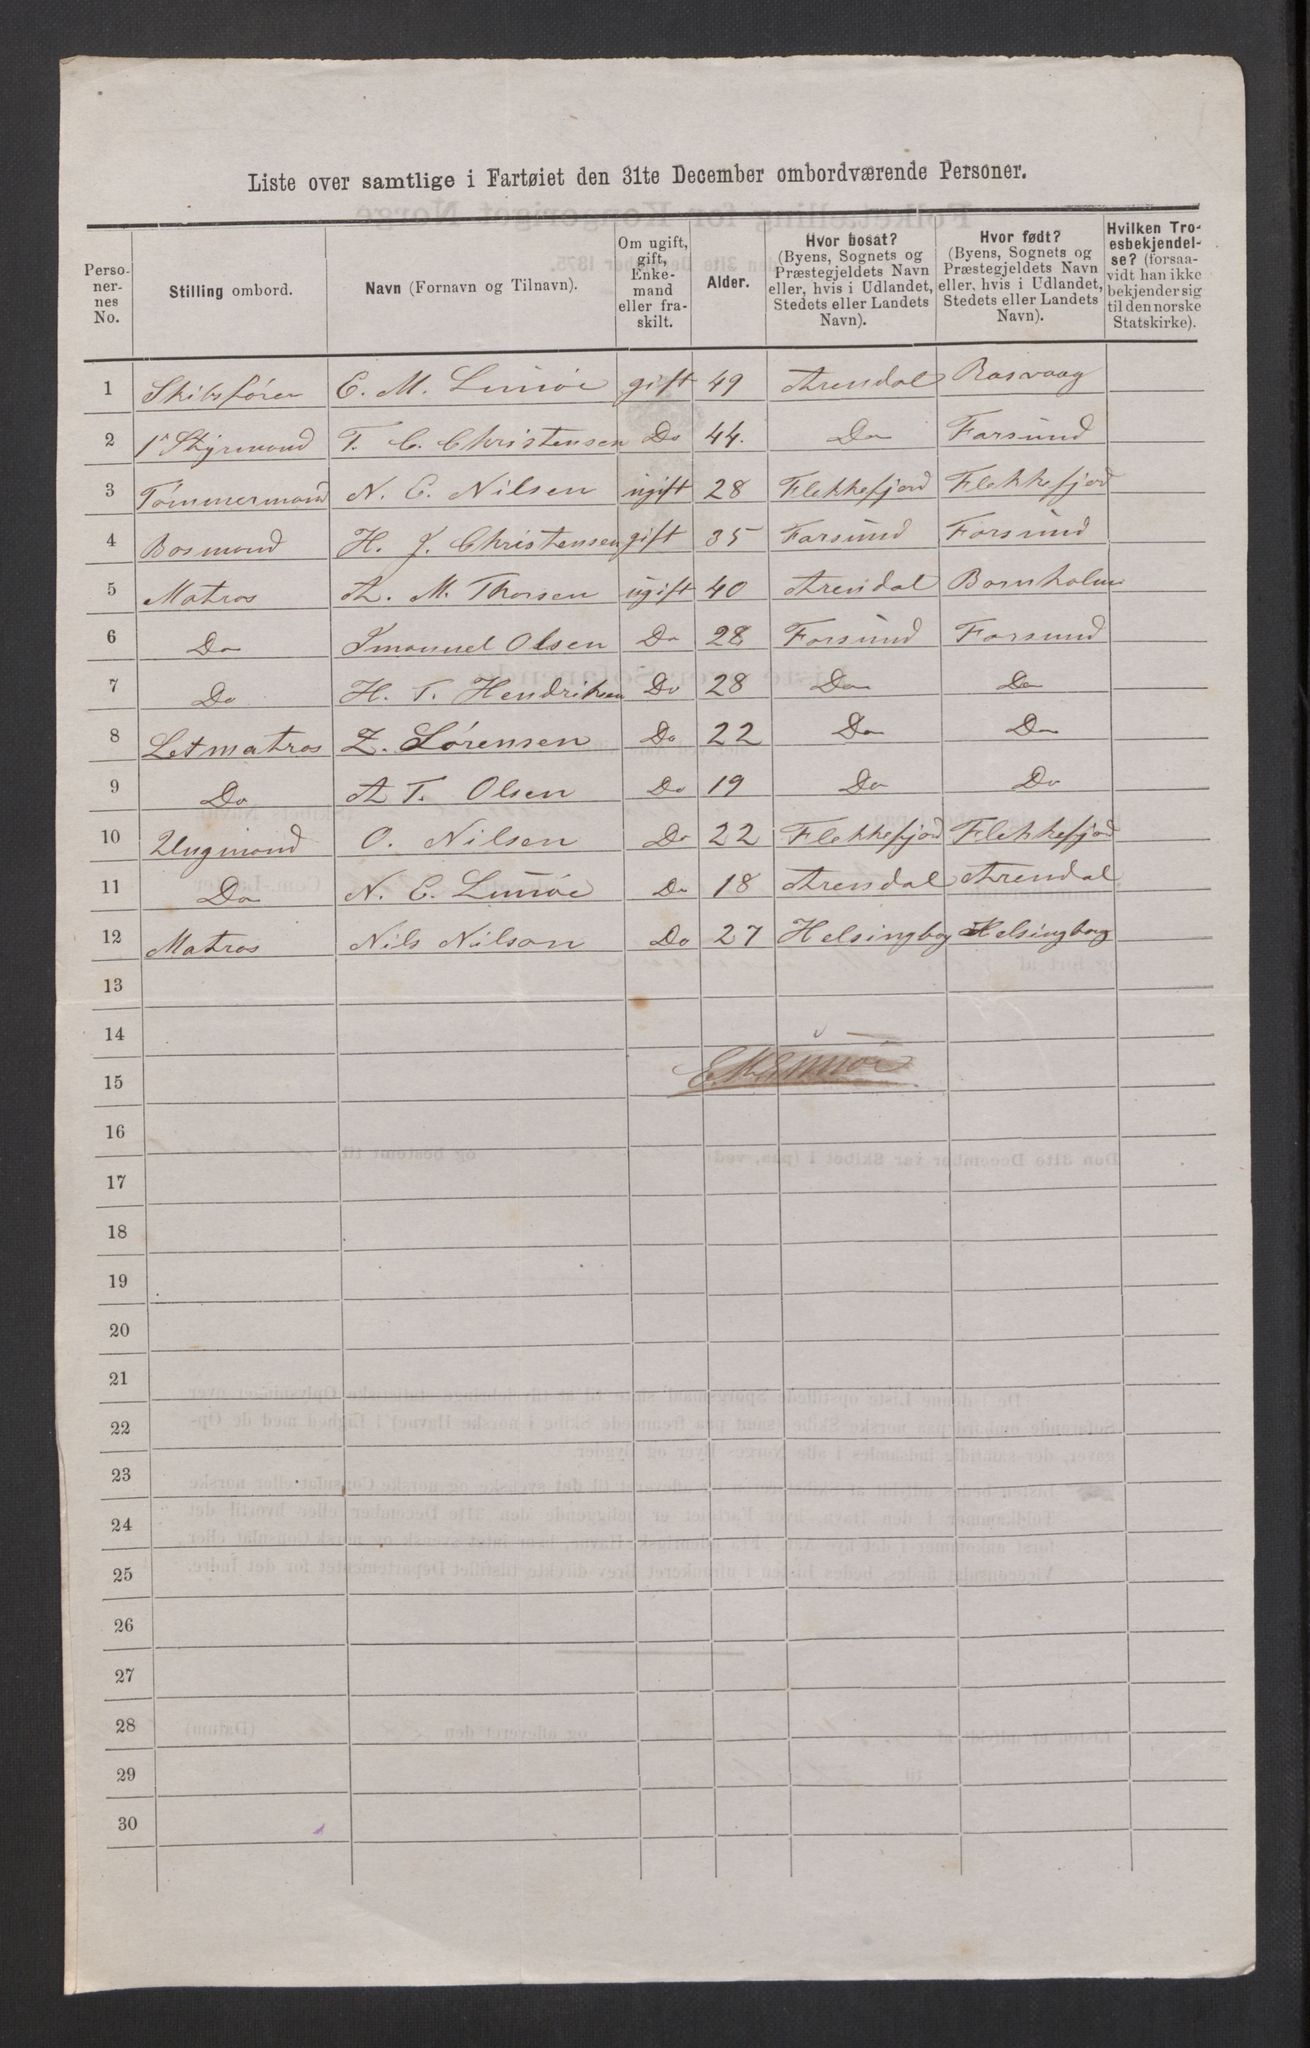 Liste over samtlige i Fartøiet den 31te December ombordværende Personer.
Perso-nernes No. | Stilling ombord. | Navn (Fornavn og Tilnavn). | Om ugift, gift, Enke-mand eller fra-skilt. | Alder. | Hvor bosat? (Byens, Sognets og Præstegjeldets Navn eller, hvis i Udlandet, Stedets eller Landets Navn). | Hvor født? (Byens, Sognets og Præstegjeldets Navn eller, hvis i Udlandet, Stedets eller Landets Navn). | Hvilken Tro-esbekjendel-se? (forsaa-vidt han ikke bekjender sig til den norske Statskirke).
1 Skibsfører E. M. gift 49 Arendal Rasvaag
2 1ste Styrmand T. C. Christensen Do 44. Do Farsund
3 Tømmermand N. C. Nilsen ugift 28 Flekkefjord Flekkefjord
4 Bosmand H. J. Christensen gift 35 Farsund Farsund
5 Matros A. M. Thorsen ugift 40 Arendal Bornholm
6 Do Imanuel Olsen Do 28 Farsund Farsund
7 Do H. T. Hendriksen Do 28 Do Do
8 Letmatros Z. Sørensen Do 22 Do Do
9 Do A T. Olsen Do 19 Do Do
10 Ungmand O. Nilsen Do 22 Flekkefjord Flekkefjord
11 Do N. C. Do 18 Arendal Arendal
12 Matros Nils Nilson Do 27 Helsingborg Helsingborg
13
14
15
16
17
18
19
20
21
22
23
24
25
26
27
28
29
30